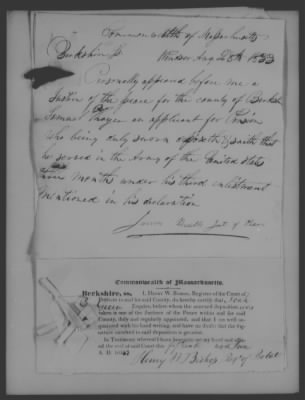 Commonwealth of Massachusetts
Berkshire ss. Windsor Aug 28th 1833
Personally appeared before me a
Justice of the peace for the county of Berkshire
Thayer an applicant for Pension
Who being duly sworn deposeth & saith that
he served in the Army of the United States
three months under his third enlistment
mentioned in his declaration
Just of Peace
Commonwealth of Massachusetts.
Berkshire, ss. I, Henry W. Bishop, Register of the Court of
Probate in and for said County, do hereby certify, that
Esquire, before whom the annexed deposition
taken is one of the Justices of the Peace within and for said
County, duly and regularly appointed, and that I am well ac-
quainted with his hand writing, and have no doubt that the signa-
ture annexed to said deposition is genuine.
In Testimony whereof I have hereunto set my hand and affixed
the seal of said Court this
A. D. 183
Henry W. Bishop Reg of Probate